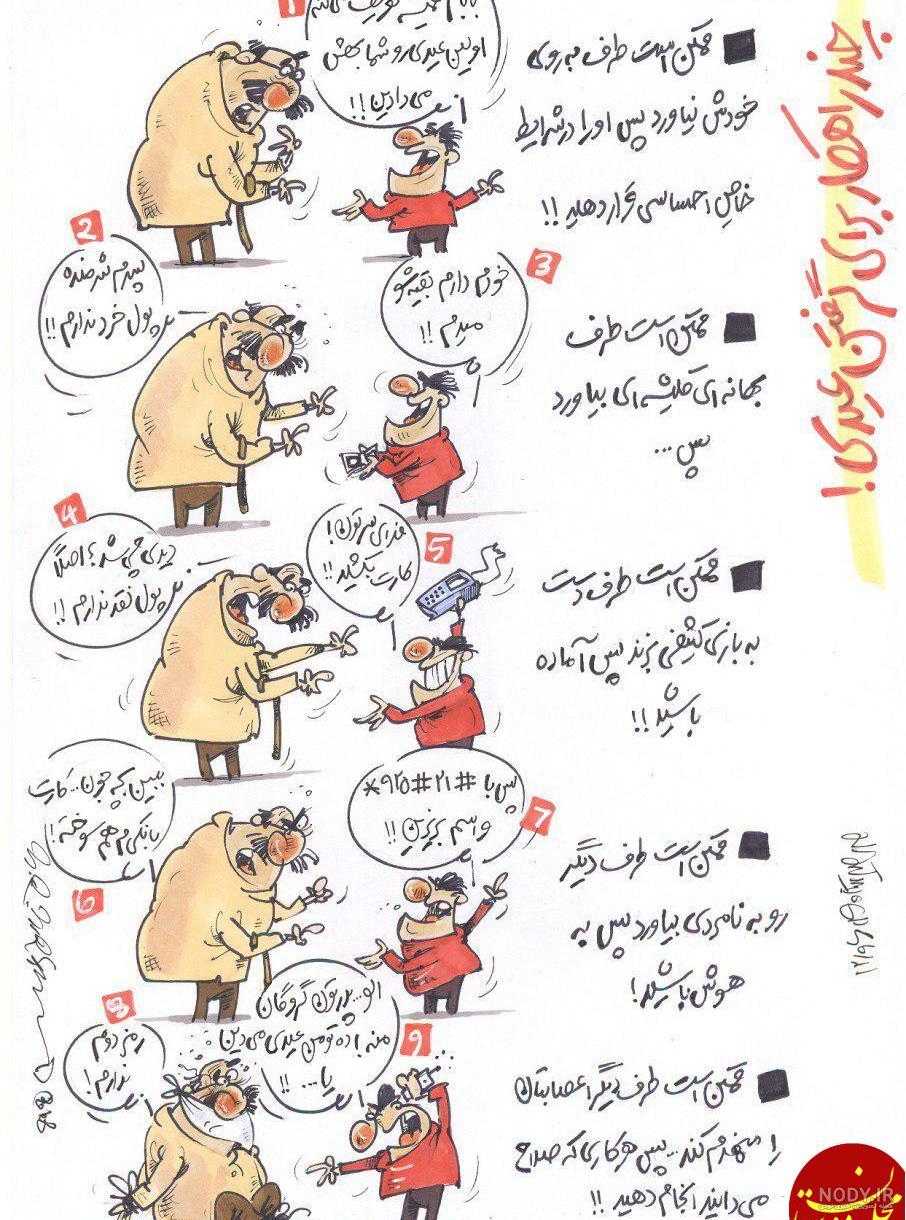 چند راهکار برای گرفتن عیدی!
ممکن است طرف به روی
خودش نیاورد پس او را در شرایط
خاص احساسی قرار دهید !!
1
اولین عیدی رو شما بهش
می دادین !!
2
پسرم شرمنده
پول خرد ندارم !!
3
خودم دارم بقیه شو
میدم !!
ممکن است طرف
بهانه ای کلیشه ای بیاورد
پس ...
4
دیدی چی شد؟ اصلاً
پول نقد ندارم !!
5
فدای سرتون!
کارت بکشید !!
ممکن است طرف دست
به بازی کثیفی بزند پس آماده
باشید !!
6
ببین بچه جون... کارت
بانکی م هم سوخته!
7
پس با
واسم بریزین !!
ممکن است طرف دیگر
رو به نامردی بیاورد پس به
هوش باشید!
8
رمز دوم
ندارم!
9
الو... پدرتون گروگان
منه! ده تومن عیدی می دین
یا... !!
ممکن است طرف دیگر اعصابتان
را منهدم کند... پس هر کاری که صلاح
می دانید انجام دهید !!
NODY.IR